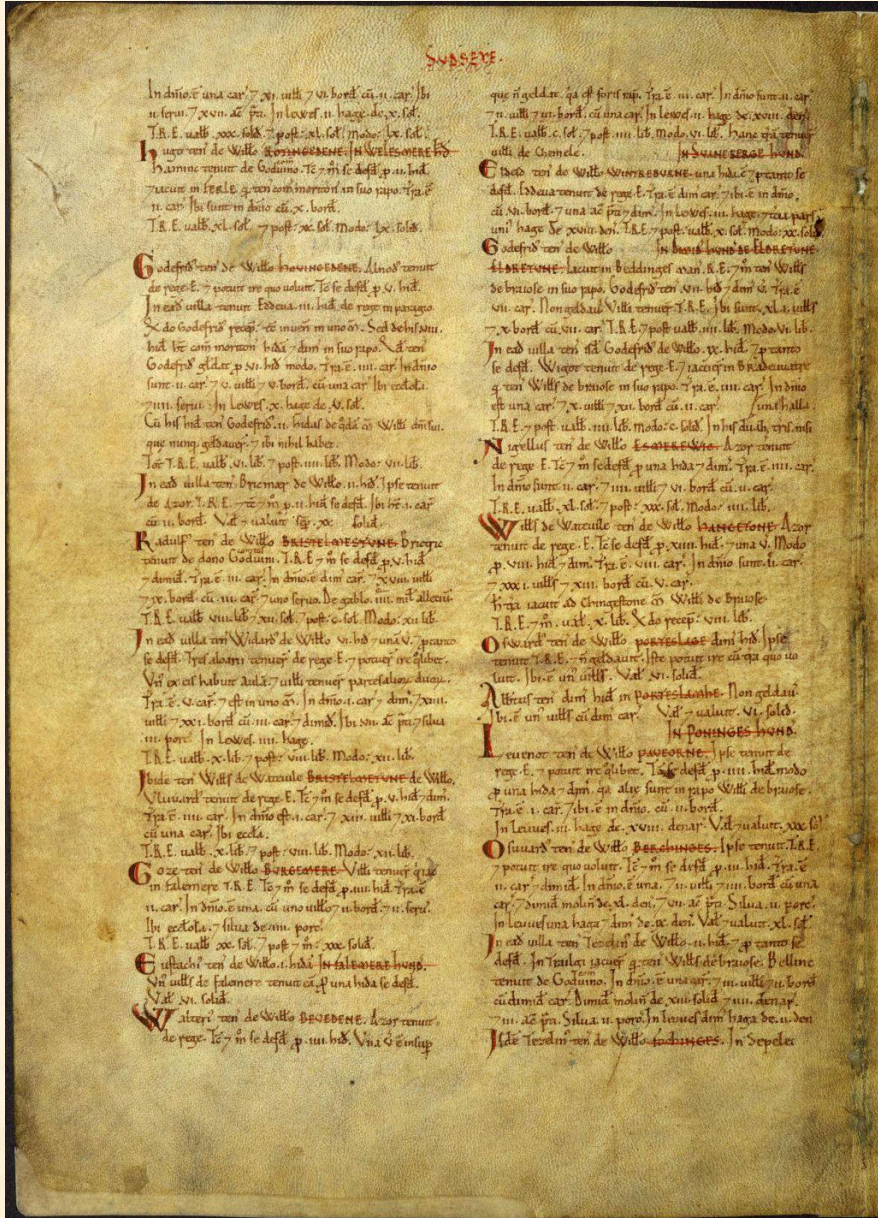 SUDSEXE.
In dñio . ē una car̃ . ⁊ xi . uilli ⁊ vi . bord̃ cū . ii . car̃ . Ibi
ii . serui . ⁊ xvii . ac̃ p̃ti . In Lewes . ii . hagæ de . x . sol̃.
T.R.E . ualb̃ . xxx . solid̃ . ⁊ post . xl . sol̃ . Modo . lx . sol̃.
Hugo teñ de Witto ROTINGEDENE. IN WELESMERE HD̃
Haminc tenuit de Goduino . Tc̃ ⁊ m̃ se defd̃ p . ii . hid̃.
⁊ iacuit in FERLE q̃ teñ com moriton in suo rapo . Tr̃a . ē
ii . car̃ . Ibi sunt in dñio cū . x . bord̃.
T.R.E . ualb̃ . xl . sol̃ . ⁊ post . xx . sol̃ . Modo . lx . solid̃.
Godefrid̃ teñ de Witto HOVINGEDENE. Alnod tenuit
de rege . E . ⁊ potuit ire quo uoluit . Tc̃ se defd̃ p . v . hid̃.
In ead̃ uilla tenuit Eddeua . iiii . hid̃ de rege in paragio
X do Godefrid̃ recep̃ . tc̃ inuen̄ in uno m̃ . Sed de his viiii
hid̃ ht̃ com moriton hidā ⁊ dim̃ in suo rapo . Qd̃ teñ
Godefrid̃ geldat p . vi . hid̃ modo . Tr̃a . ē . iiii . car̃ . In dñio
sunt . ii . car̃ . ⁊ v . uilli ⁊ v . bord̃ . cū una car̃ . Ibi ecclola .
⁊ iiii . serui . In Lewes . x . hagæ de . v . sol̃.
Cū his hid̃ teñ Godefrid̃ . ii . hidas de q̃dā m̃ Willi dñi sui.
que nunq̃ geldauer̃ . ⁊ ibi nihil habet.
Tot̃ T.R.E . ualb̃ . vi . lib̃ . ⁊ post . iiii . lib̃ . Modo . vii . lib̃.
In ead̃ uilla teñ Bricmær de Witto . ii . hid̃ . Ipse tenuit
de Azor . T.R.E . ⁊ tc̃ ⁊ m̃ p . ii . hid̃ se defd̃ . Ibi ht̃ . i . car̃
cū . ii . bord̃ . Val̃ ⁊ ualuit sẽp . xx . solid̃.
Radulf̃ teñ de Witto BRISTELMESTUNE. Brictric
tenuit de dono Goduini . T.R.E ⁊ m̃ se defd̃ p . v . hid̃
⁊ dimid̃ . Tr̃a . ē . iii . car̃ . In dñio . ē dim̃ car̃ . ⁊ xviii . uilli
⁊ ix . bord̃ . cū . iii . car̃ . ⁊ uno seruo . De gablo . iiii . mil̃ alleciū.
T.R.E . ualb̃ viii . lib̃ ⁊ xii . sol̃ . ⁊ post . c . sol̃ . Modo . xii . lib̃
In ead̃ uilla teñ Widard̃ de Witto . vi . hid̃ ⁊ unā . v . ⁊ p tanto
se defd̃ . Tres aloarii tenuer̃ de rege . E . ⁊ potuer̃ ire q̃libet.
Vn̄ ex eis habuit aulā . ⁊ uilli tenuer̃ partes alioꝝ duoꝝ.
Tr̃a . ē . v . car̃ . ⁊ est in uno m̃ . In dñio . i . car̃ ⁊ dim̃ . ⁊ xiiii .
uilli ⁊ xxi . bord̃ cū . iii . car̃ . ⁊ dimid̃ . Ibi vii . ac̃ p̃ti ⁊ silua
iii . porc̃ . In Lewes . iiii . hagæ.
T.R.E . ualb̃ . x . lib̃ . ⁊ post . viii . lib̃ . Modo . xii . lib̃.
Ibidē teñ Wills de Wateuile BRISTELMETUNE de Witto.
Vluuard tenuit de rege . E . Tc̃ ⁊ m̃ se defd̃ . p . v . hid̃ ⁊ dim̃.
Tr̃a . ē . iiii . car̃ . In dñio est . i . car̃ . ⁊ xiii . uilli ⁊ xi . bord̃
cū una car̃ . Ibi eccla.
T.R.E . ualb̃ . x . lib̃ . ⁊ post . viii . lib̃ . Modo . xii . lib̃.
Goze teñ de Witto BURGEMERE. Villi tenuer̃ q̃ iac̃
in Falemere T.R.E . Tc̃ ⁊ m̃ se defd̃ p . iiii . hid̃ . Tr̃a . ē
ii . car̃ . In dñio . ē una . cū uno uillo ⁊ ii . bord̃ . ⁊ ii . serui.
Ibi ecclola . ⁊ silua de . iiii . porc̃.
T.R.E . ualb̃ . xx . sol̃ . ⁊ post ⁊ m̃ . xxx . solid̃.
Eustachi teñ de Witto . i . hidā IN FALEMERE HUND.
Vn̄ uills de Falemere tenuit eā . p una hida se defd̃.
Val̃ . vi . solid̃.
Walteri teñ de Witto BEVEDENE. Azor tenuit
de rege . Tc̃ ⁊ m̃ se defd̃ . p . iiii . hid̃ . Vna v̄ ē insup
que ñ geldat . q̃a est foris rap̃ . Tr̃a . ē . iii . car̃ . In dñio sunt . ii . car̃.
⁊ ii . uilli ⁊ vi . bord̃ . cū una car̃ . In Lewes . ii . hagæ de . xviii . den̄.
T.R.E . ualb̃ . c . sol̃ . ⁊ post . iiii . lib̃ . Modo . vi . lib̃ . Hanc t̃rā tenuer̃
uilli de Chemele. IN SUANEBERGE HUND.
Eldeid teñ de Witto WINTREBURNE. una hida . ē ⁊ p tanto se
defd̃ . Eddeua tenuit de rege . E . Tr̃a . ē dim̃ car̃ . ⁊ ibi . ē in dñio.
cū . vi . bord̃ . ⁊ una ac̃ p̃ti ⁊ dim̃ . In Lewes . iii . hagæ ⁊ tcia pars
uni hagæ de xviii den̄ . T.R.E . ⁊ post . ualb̃ . x . sol̃ . Modo . xx . solid̃
Godefrid̃ teñ de Witto IN DIMID HUND DE ELDRETUNE.
ELDRETUNE. Iacuit in Beddinges Man̄ . R.E . ⁊ m̃ teñ Wills
de braiose in suo rapo . Godefrid̃ teñ . vii . hid̃ ⁊ dim̃ v̄ . Tr̃a . ē
vii . car̃ . Non geldau̇ . Villi tenuer̃ T.R.E . Ibi sunt . xli . uills
⁊ x . bord̃ cū . vii . car̃ . T.R.E . ⁊ post ualb̃ . iiii . lib̃ . Modo . vi . lib̃.
In ead̃ uilla teñ isd̃ Godefrid̃ de Witto . ix . hid̃ . ⁊ p tanto
se defd̃ . Wigot tenuit de rege . E . ⁊ iacuer̃ in BRADEWATRE
q̃ teñ Wills de braiose in suo rapo . Tr̃a . ē . iiii . car̃ . In dñio
est una car̃ . ⁊ x . uilli ⁊ xii . bord̃ cū . ii . car̃ . ⌈una halla.
T.R.E . ⁊ post . ualb̃ . iiii . lib̃ . Modo . c . solid̃ . In his duab̃ t̃ris . nisi
Nigellus teñ de Witto ESMEREWIC. Azor tenuit
de rege . E . Tc̃ ⁊ m̃ se defd̃ . p una hida ⁊ dim̃ . Tr̃a . ē . iiii . car̃.
In dñio sunt . ii . car̃ . ⁊ iiii . uilli ⁊ vi . bord̃ cū . ii . car̃.
T.R.E . ualb̃ . xl . sol̃ . ⁊ post . xxx . sol̃ . Modo . iiii . lib̃.
Wills de Wateuile teñ de Witto HANGETONE. Azor
tenuit de rege . E . Tc̃ se defd̃ . p . xiiii . hid̃ . ⁊ una v̄ . Modo
p . viii . hid̃ ⁊ dim̃ . Tr̃a . ē . viii . car̃ . In dñio sunt . ii . car̃.
⁊ xxxi . uills ⁊ xiii . bord̃ cū . v . car̃.
H̃ tr̃a iacuit ad Chingestone m̃ Willi de Braiose.
T.R.E . ⁊ m̃ . ual̃ . x . lib̃ . X do recep̃ . viii . lib̃.
Osward̃ teñ de Witto PORTESLAGE dim̃ hid̃ . Ipse
tenuit T.R.E . ⁊ ñ geldauit . Iste potuit ire cū t̃ra quo uo
luit . Ibi . ē un̄ uills . Val̃ . vi . solid̃.
Albtus teñ dim̃ hid̃ in PORTESLAMHE. Non geldau̇.
Ibi . ē un̄ uills cū dim̃ car̃ . Val̃ ⁊ ualuit . vi . solid̃.
IN PONINGES HUND.
Levenot teñ de Witto PAVEORNE. Ipse tenuit de
rege . E . ⁊ potuit ire q̃libet . Tc̃ se defd̃ p . iiii . hid̃ . modo
p una hida ⁊ dim̃ . q̃a aliæ sunt in rapo Willi de braiose.
Tr̃a . ē . i . car̃ . ⁊ ibi . ē in dñio . cū . ii . bord̃.
In Leuues . iii . hagæ de . xviii . denar̃ . Val̃ ⁊ ualuit . xxx . sol̃
Osuuard teñ de Witto BERCHINGES. Ipse tenuit T.R.E.
⁊ potuit ire quo uoluit . Tc̃ ⁊ m̃ se defd̃ . p . iii . hid̃ . Tr̃a . ē
ii . car̃ ⁊ dimid̃ . In dñio . ē una . ⁊ ii . uilli ⁊ iiii . bord̃ cū una
car̃ . ⁊ dimid̃ molin̄ de . xl . den̄ . ⁊ vii . ac̃ p̃ti . Silua . ii . porc̃.
In Leuues una haga ⁊ dim̃ de . ix . den̄ . Val̃ ⁊ ualuit . xl . sol̃.
In ead̃ uilla teñ Tezelin̄ de Witto . ii . hid̃ . ⁊ p tanto se
defd̃ . In Trailgi iacuer̃ q̃ teñ Wills de braiose . Belling
tenuit de Goduino . In dñio . ē una car̃ . ⁊ iii . uilli ⁊ ii . bord̃
cū dimid̃ car̃ . Dimid̃ molin̄ de . xiii . solid̃ ⁊ iiii . denar̃.
⁊ iii . ac̃ p̃ti . Silua . ii . porc̃ . In Leuues dim̃ haga de . ii . den̄
Isdē Tezelin̄ teñ de Witto FOCHINGES. In Sepelei